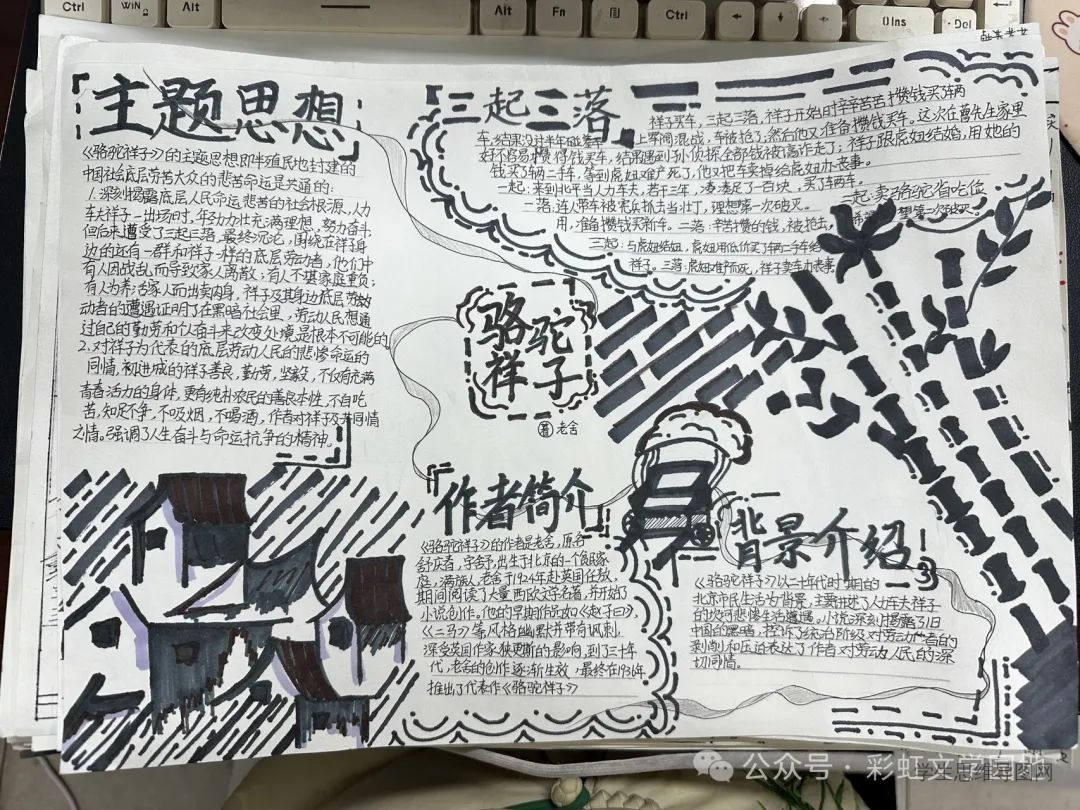 主题思想
《骆驼祥子》的主题思想即半殖民地封建的
中国社会底层劳苦大众的悲苦命运是共通的:
1.深刻揭露底层人民命运悲苦的社会根源,人力
车夫祥子一出场时,年轻力壮充满理想,努力奋斗
但后来遭受了三起三落,最终沉沦,围绕在祥子身
边的还有一群和祥子一样的底层劳动者,他们中
有人因战乱而导致家人离散;有人不堪家庭重负;
有人为养活家人而出卖肉身,祥子及其身边底层劳
动者的遭遇证明了在黑暗社会里,劳动人民想通
过自己的勤劳和个人奋斗来改变处境是根本不可能的
2.对祥子为代表的底层劳动人民的悲惨命运的
同情,初进城的祥子善良,勤劳,坚毅,不仅有充满
青春活力的身体,更有纯朴农民的善良本性,不白吃
苦,知足不争,不吸烟,不喝酒,作者对祥子及其同情
之情。强调了人生奋斗与命运抗争的精神。
三起三落
祥子买车,三起三落,祥子开始时辛辛苦苦攒钱买了辆
车,结果没过半年碰着车上军阀混战,车被抢了,然后他又准备攒钱买车。这次在曹先生家里
好不容易攒得钱买车,结果遇到孙侦探,全部钱被高诈走了;祥子跟虎妞结婚,用她的
钱买了辆二手车,等到虎妞难产死了,他又把车卖掉给虎妞办丧事。
一起:来到北平当人力车夫,若干三年,凑满足了一百块,买了车辆车。
一落:连人带车被宪兵抓去当壮丁,理想第一次破灭。
二起:卖骆驼,省吃俭
用,准备攒钱买新车。二落:辛苦攒的钱,被抢去,
想第二次破灭。
三起:与虎妞结婚,虎妞用低价买了辆二手车给
祥子。三落:虎妞难产而死,祥子卖车办丧事
骆驼
祥子
著 老舍
作者简介
《骆驼祥子》的作者是老舍,原名
舒庆春,字舍予,出生于北京的一个贫民家
庭,满族人,老舍于1924年赴英国任教,
期间阅读了大量西欧文学名著,并开始了
小说创作。他的早期作品如《赵子曰》,
《二马》等,风格幽默并带有讽刺,
深受英国作家狄更斯的影响,到了三十年
代,老舍的创作逐渐生效,最终在1936年
推出了代表作《骆驼祥子》
背景介绍
《骆驼祥子》以二十年代时期的
北京市民生活为背景,主要讲述了人力车夫祥子
的坎坷悲惨生活遭遇。小说深刻揭露了旧
中国的黑暗,控诉了统治阶级对劳动者的
剥削和压迫表达了作者对劳动人民的深
切同情。
公众号·彩虹
学生思维导图网
Alt
WIN
Alt
Fn
Ctrl
Ins
Del